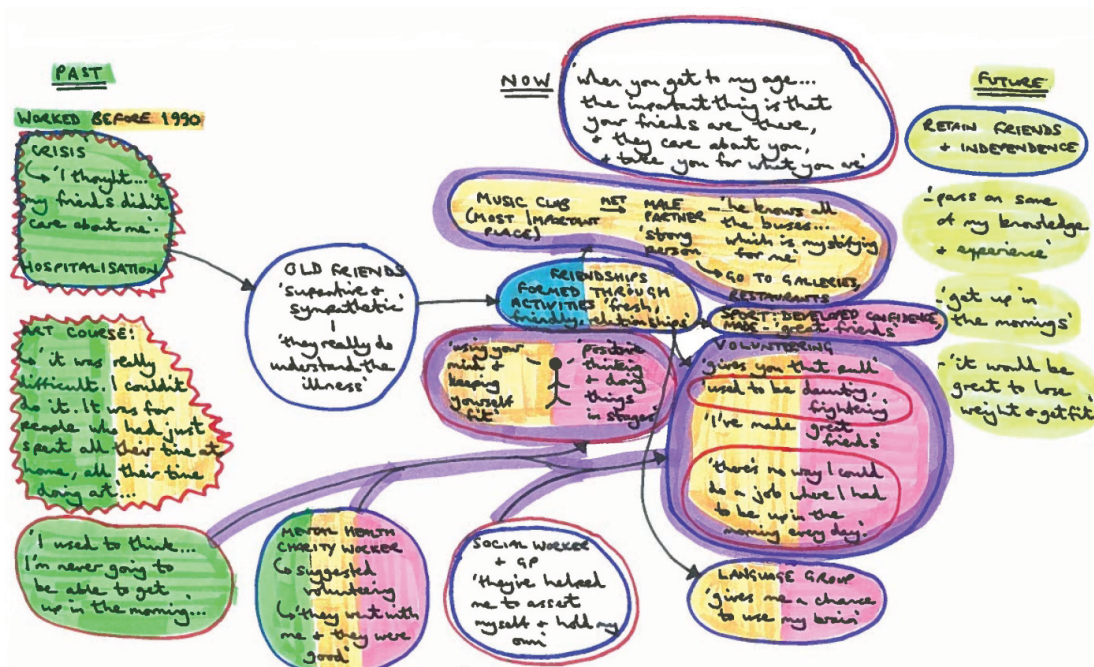 PAST
WORKED BEFORE 1990
CRISIS
'I thought...
my friends didn't
care about me'.
HOSPITALISATION
ART COURSE:
'it was really
difficult. I couldn't
do it. It was for
people who had just
spent all their time at
home, all their time
doing art...
'I used to think...
I'm never going to
be able to get
up in the morning...
OLD FRIENDS
'supportive +
sympathetic'
'they really do
understand the
illness'
MENTAL HEALTH
CHARITY WORKER
suggested
volunteering
'they went with
me + they were
good'
SOCIAL WORKER
+ GP
'they've helped
me to asset
myself + hold my
own'
NOW
'when you get to my age...
the important thing is that
your friends are there,
+ they care about you,
+ take you for what you are'
MUSIC CLUB
(MOST IMPORTANT
PLACE)
MET
MALE
PARTNER
'strong
person
'he knows all
the buses...
which is mystifying
for me'
GO TO GALLERIES,
RESTAURANTS
FRIENDSHIPS
FORMED THROUGH
ACTIVITIES 'fresh,
friendly, relationships
SPORT: DEVELOPED CONFIDENCE,
MADE - 'great friends'
'using your
mind +
keeping
yourself
fit'
'positive
thinking
+ doing
things
in stages'
VOLUNTEERING
'gives you that pull'
'used to be daunting,
frightening'
'I've made great
friends'
'there's no way I could
do a job where I had
to be up in the
morning every day'.
LANGUAGE GROUP
'gives me a chance
to use my brain'
FUTURE
RETAIN FRIENDS
+ INDEPENDENCE
-'pass on some
of my knowledge
+ experience'
-'get up in
the mornings'
-'it would be
great to lose
weight + get fit'